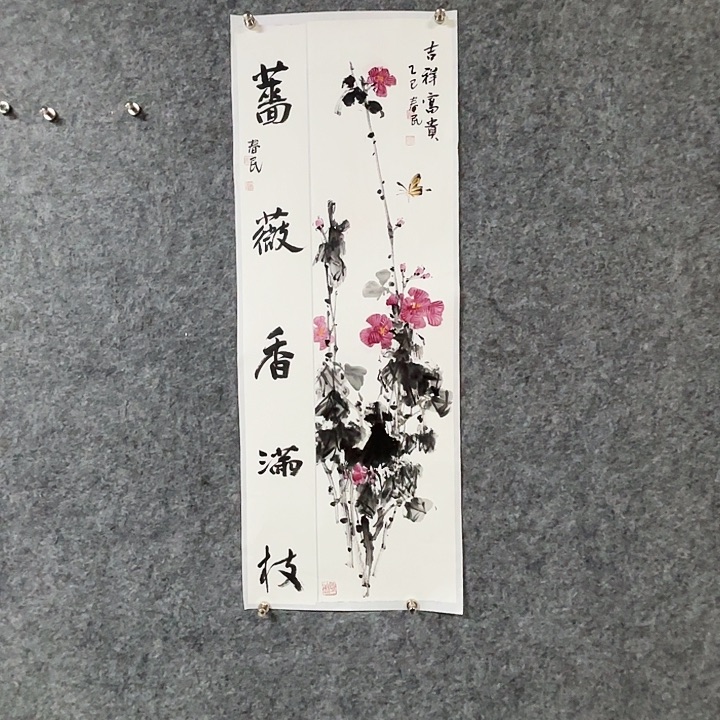 吉祥富貴
乙巳春民
薔薇香滿枝
春民